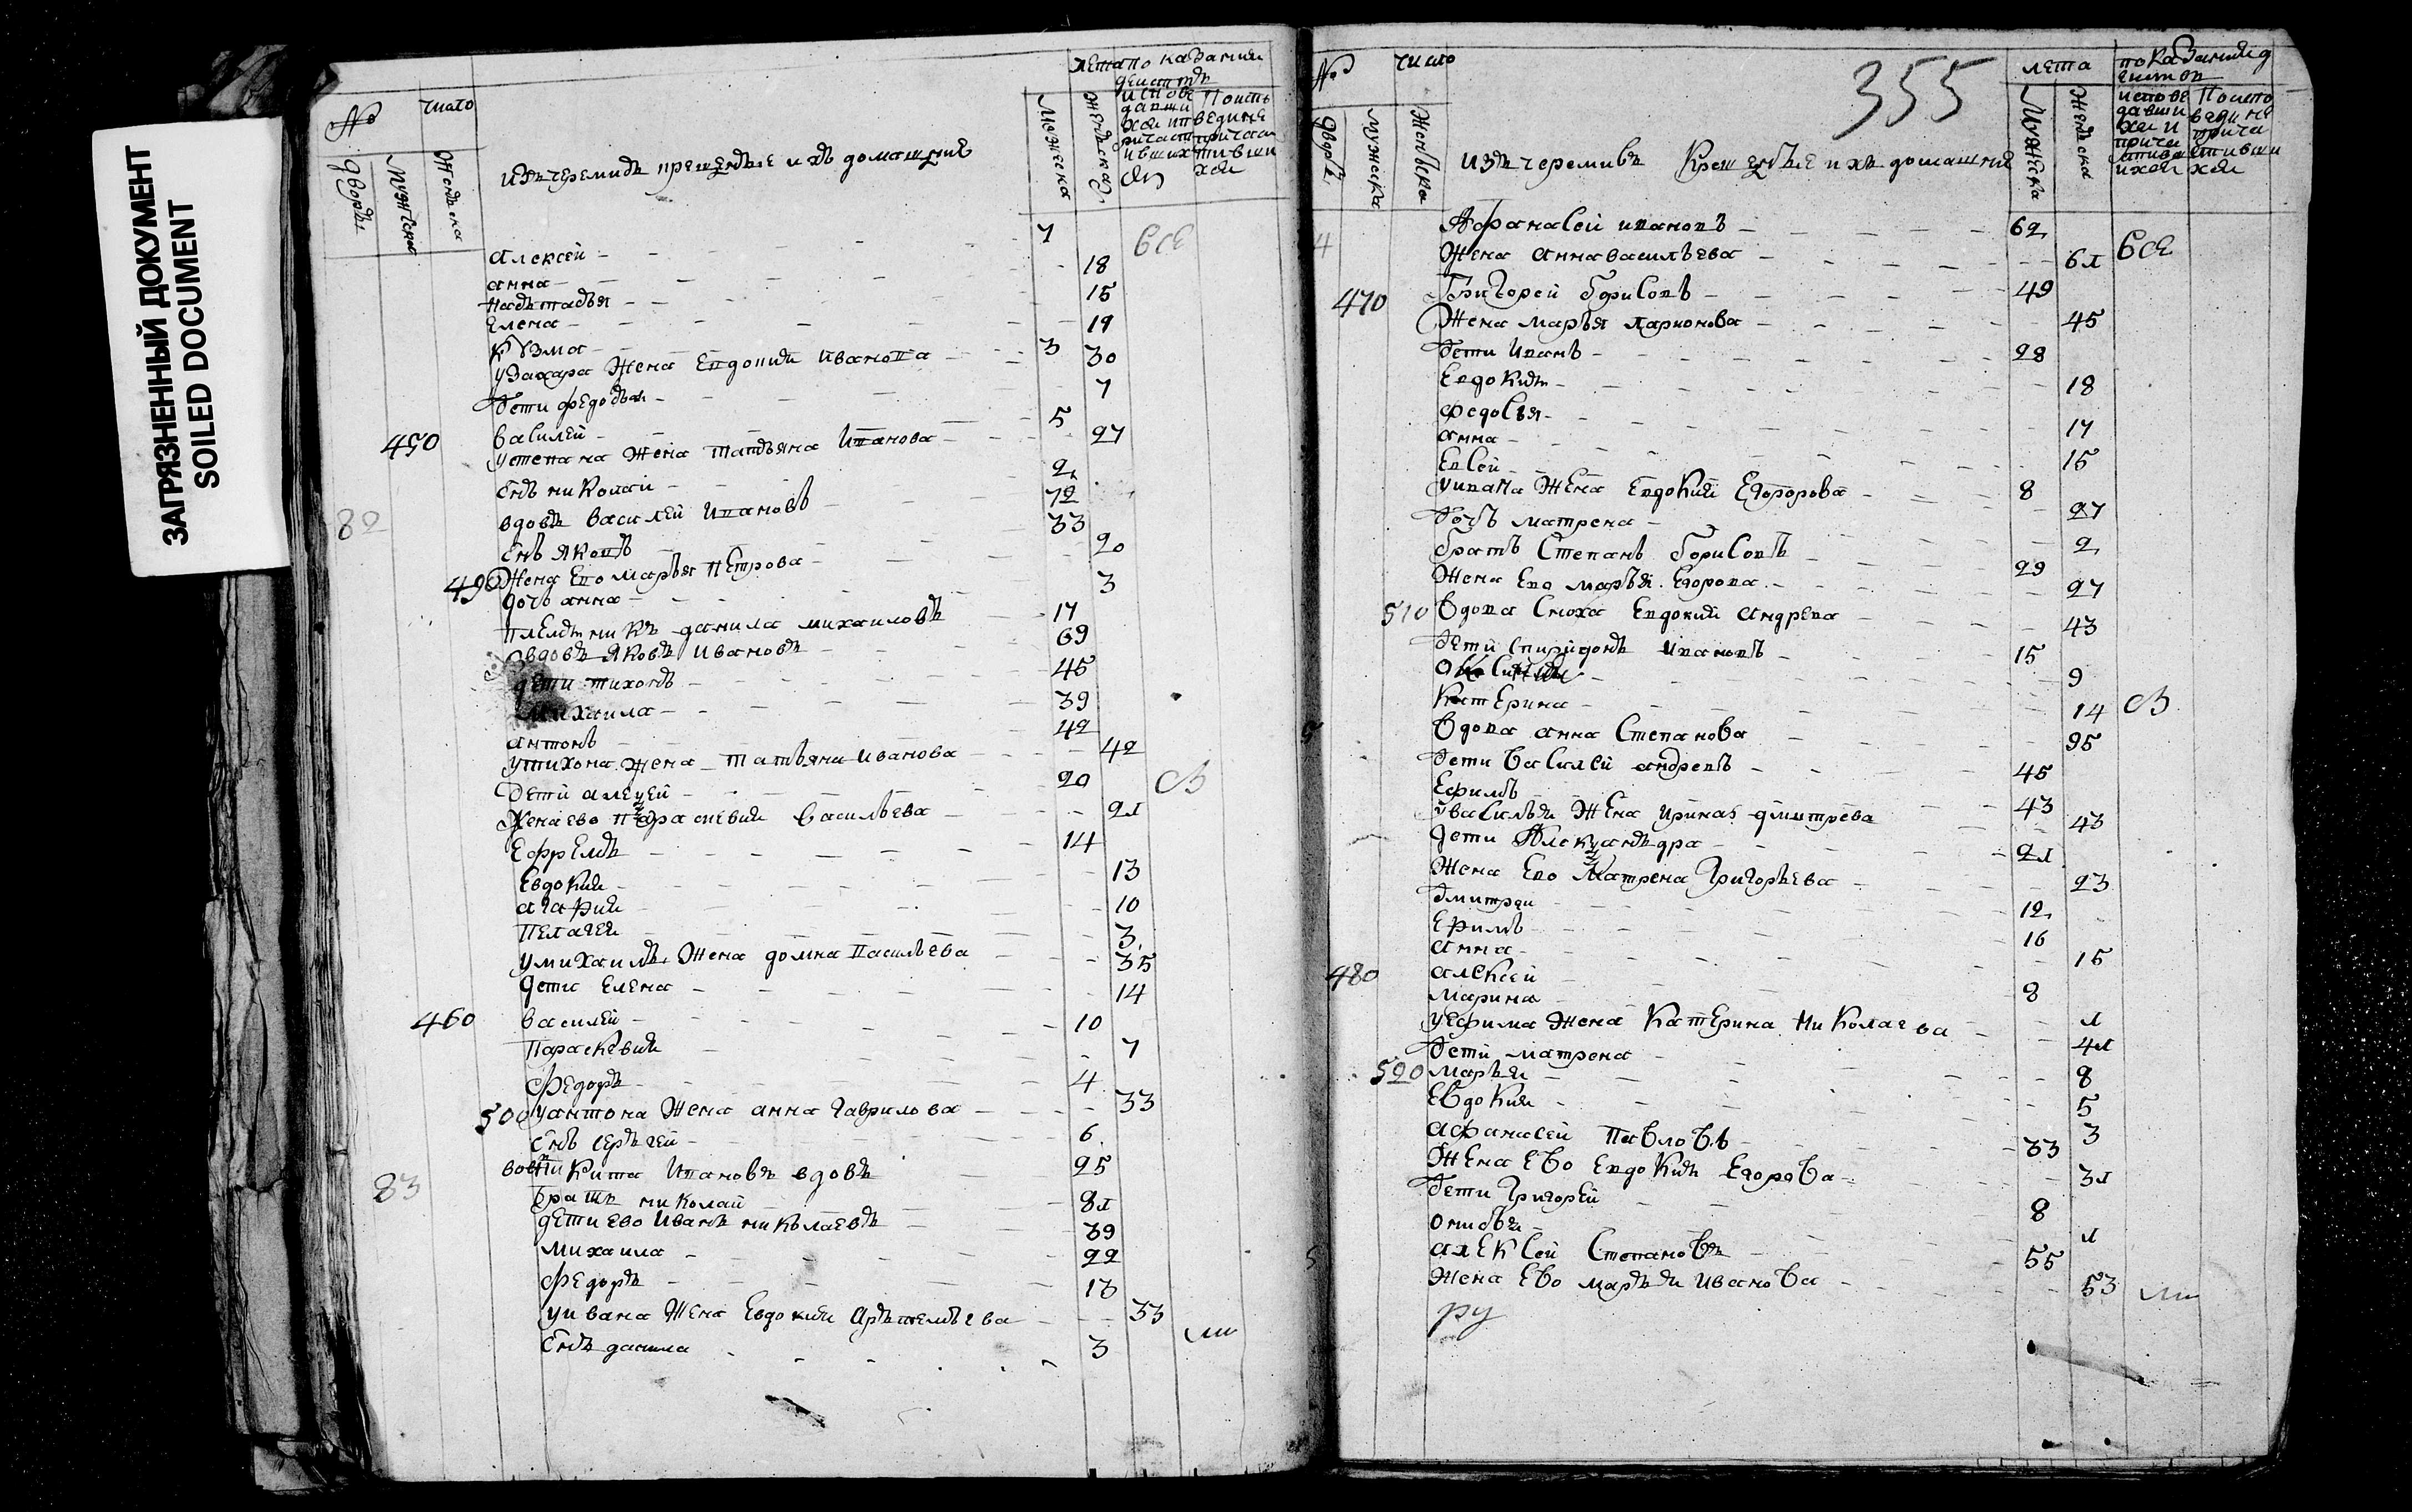 ЗАГРЯЗНЕННЫЙ ДОКУМЕНТ
SOILED DOCUMENT
№
число
дворы
мужеска
женска
изъ черемисъ крещеные и ихъ домашние
лета
показания
мужеска
женска
Алексей 7
все
анна 18
15
Елена 19
кузма 3
у Захара жена Евдокия иванова 30
дети федосья 7
василей 5
450
у степана жена татьяна Иванова 27
снъ николай 2
82
вдовъ василей Ивановъ 72
снъ яковъ 33
490
жена ево марья петрова 20
дочь анна 3
племник данила михаиловъ 17
вдовъ яковъ ивановъ 69
дети тихонъ 45
михаила 39
антонъ 42
у тихона жена татьяна иванова 42
дети алеѯей 20
жена ево параскевия васильева 21
Ефремъ 14
Евдокия 13
агафия 10
пелагея 3
у михаила жена домна васильева 35
дети елена 14
460
василей 10
параскевия 7
федоръ 4
500
у антона жена анна гаврилова 33
снъ сергей 6
83
никита Ивановъ вдовъ 95
братъ николай 81
дети ево иванъ николаевъ 39
михаила 22
федоръ 13
у ивана жена Евдокия артемьева 33
снъ данила 3
№
число
355
дворы
мужеска
женска
изъ черемисъ крещеные и ихъ домашние
лета
мужеска
женска
Афанасей ивановъ 62
все
жена анна васильева 61
470
Григорей борисовъ 49
жена марья ларионова 45
дети иванъ 28
Евдокия 18
федосья 17
анна 15
Евсей 8
у ивана жена Евдокия Егорова 27
дочь матрена 2
братъ Степанъ борисовъ 29
жена ево марья Егорова 27
510
вдова сноха Евдокия андреева 43
дети спиридонъ ивановъ 15
9
катерина 14
вдова анна Степанова 95
дети василей андреевъ 45
Ефимъ 43
у василья жена ирина дмитрева 43
дети Алеѯандра 21
жена ево матрена григорьева 23
дмитрей 12
Ефимъ 16
анна 15
480
алексей 8
марина 1
у ефима жена катерина николаева 41
дети матрена 8
520
марья 5
Евдокия 3
афанасей павловъ 33
жена ево евдокия Егорова 31
дети григорей 8
1
алексей Степановъ 55
жена ево марья иванова 53
ру